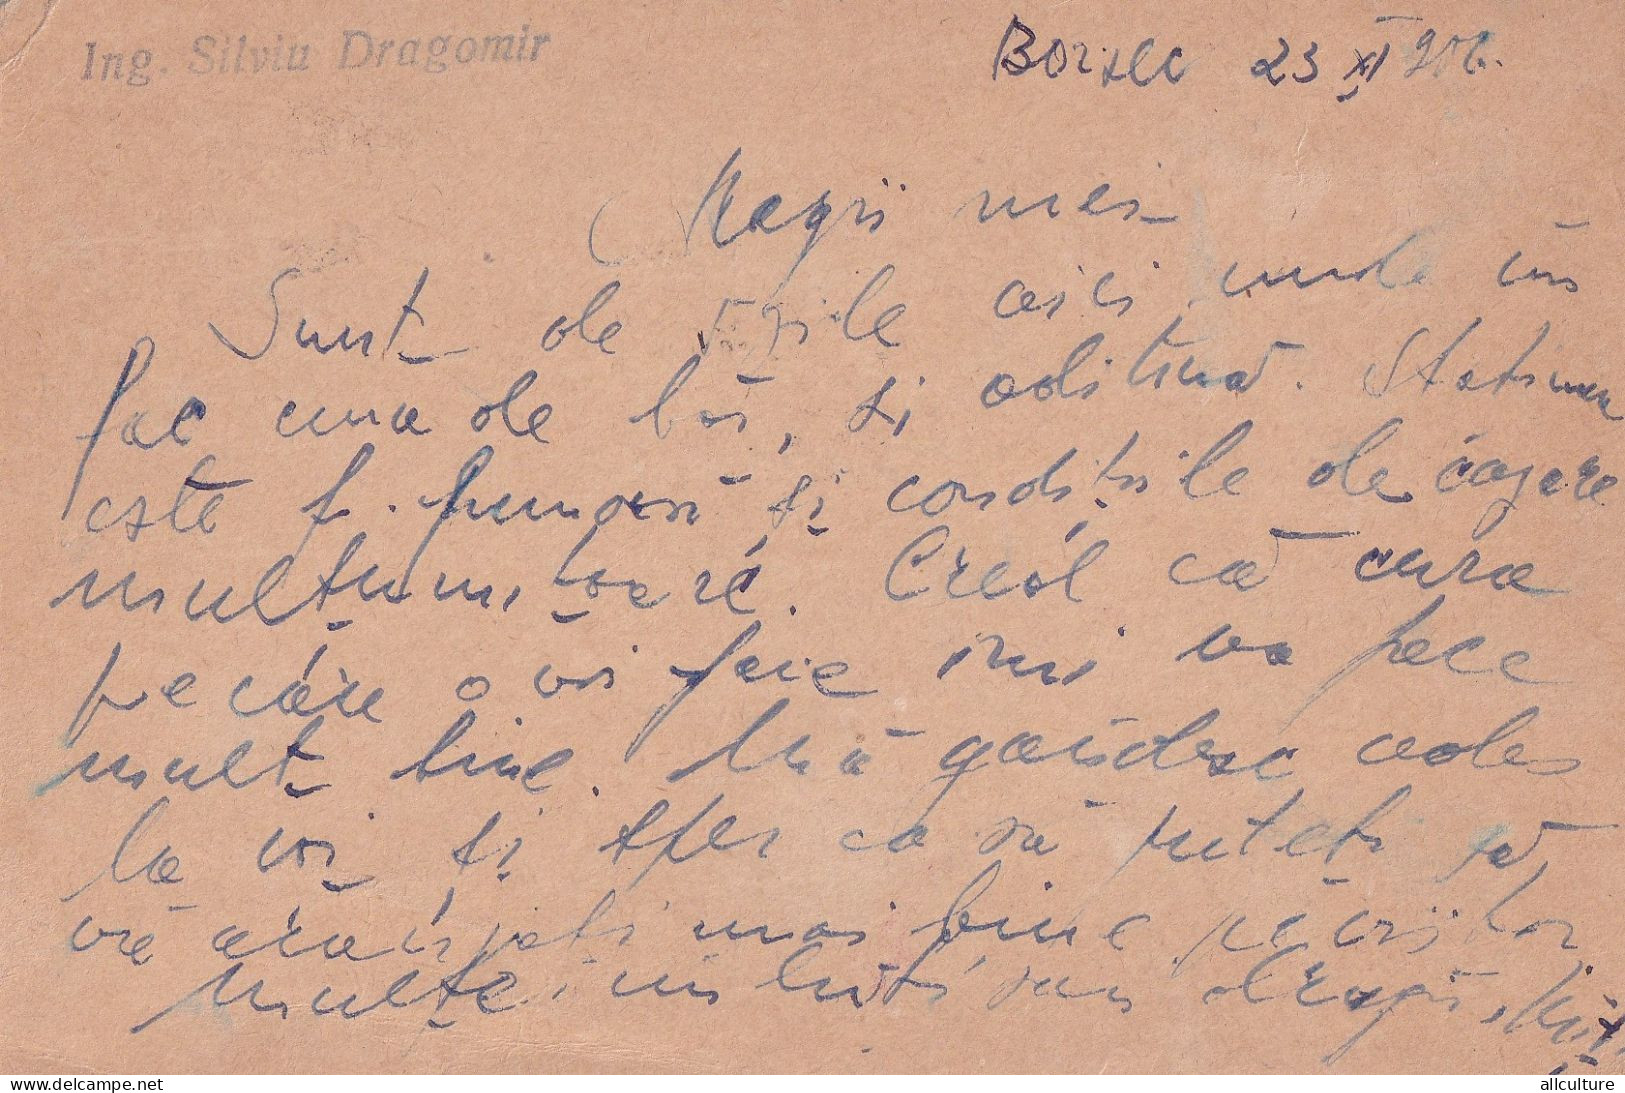 Ing. Silviu Dragomir
Borsec 23 XI
Dragii mei
Sunt de zile aici unde îmi
fac cura de băi, și odihnă. Stațiunea
este f. frumoasă și condițiile de cazare
mulțumitoare. Cred că cura
pe care o voi face îmi va face
mult bine. Mă gândesc ades
la voi și sper ca să puteți să
vă aranjați mai bine pe viitor
Multe îmbrățișări dragi,
allculture